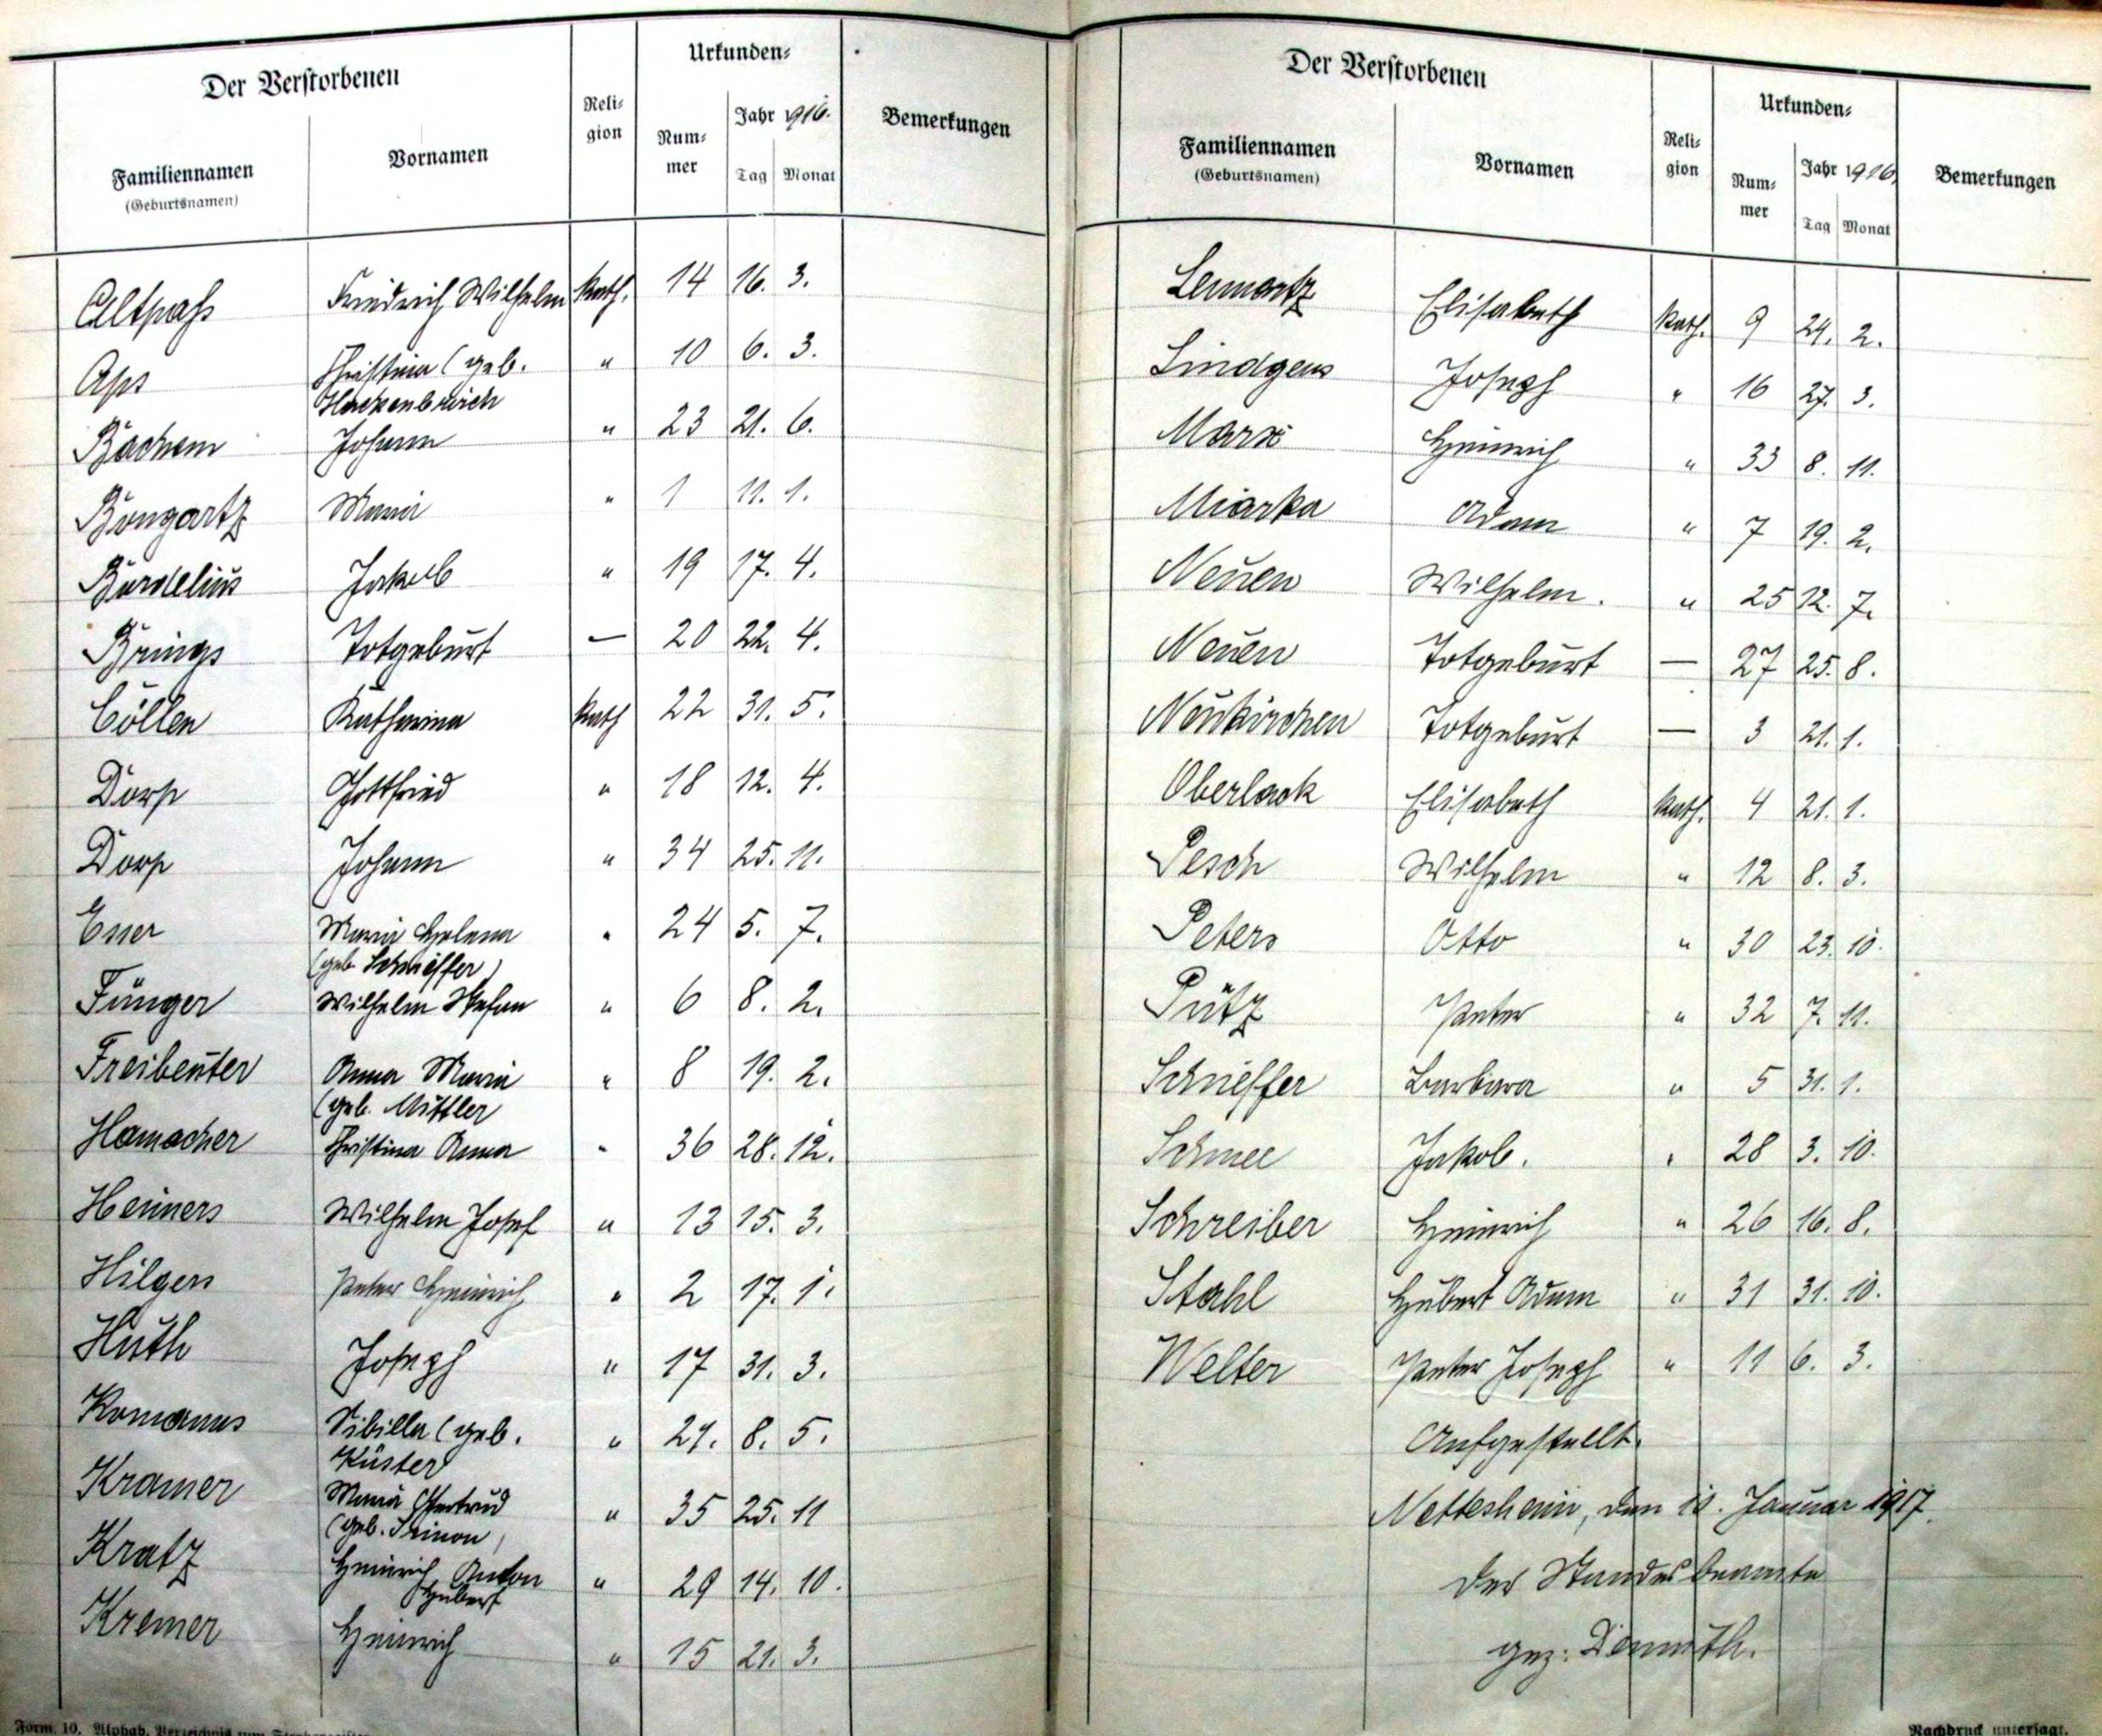 Der Verstorbenen
Familiennamen
(Geburtsnamen)
Vornamen
Reli-
gion
Urkunden-
Num-
mer
Jahr 1916.
Tag Monat
Bemerkungen
Altpaß Friedrich Wilhelm kath. 14 16. 3.
Aps Christina (geb. " 10 6. 3.
Hackenbruch
Bachem Johann " 23 21. 6.
Bongartz Maria " 1 11. 1.
Jakob " 19 17. 4.
Brings Totgeburt — 20 22. 4.
Cöllen Katharina kath 22 31. 5.
Dorp Gottfried " 18 12. 4.
Dorp Johann " 34 25. 11.
Esser Maria Helena " 24 5. 7.
(geb. Schieffer)
Fünger Wilhelm Stefan " 6 8. 2.
Freibeuter Anna Maria " 8 19. 2.
(geb. Mittler
Hamacher Christina Anna " 36 28. 12.
Heiners Wilhelm Josef " 13 15. 3.
Hilgers Peter Heinrich " 2 17. 1.
Huth Joseph " 17 31. 3.
Komanns Sibilla (geb. " 21. 8. 5.
Küster
Kramer Maria Gertrud " 35 25. 11
(geb. Simon)
Kratz Heinrich Anton " 29 14. 10.
Hubert
Kremer Heinrich " 15 21. 3.
Form. 10. Alphab. Verzeichnis zum Sterberegister
Der Verstorbenen
Familiennamen
(Geburtsnamen)
Vornamen
Reli-
gion
Urkunden-
Num-
mer
Jahr 1916
Tag Monat
Bemerkungen
Lennartz Elisabeth kath. 9 24. 2.
Lindgens Joseph " 16 27. 3.
Marx Heinrich " 33 8. 11.
Miarka Adam " 7 19. 2.
Neuen Wilhelm. " 25 12. 7.
Neuen Totgeburt — 27 25. 8.
Neukirchen Totgeburt — 3 21. 1.
Oberlack Elisabeth kath. 4 21. 1.
Pesch Wilhelm " 12 8. 3.
Peters Otto " 30 23. 10.
Pütz Peter " 32 7. 11.
Schieffer Barbara " 5 31. 1.
Schmee Jakob. " 28 3. 10.
Schreiber Heinrich " 26 16. 8.
Stahl Hubert Adam " 31 31. 10.
Welter Peter Joseph " 11 6. 3.
Aufgestellt.
Nettesheim, den Januar 1917.
Der Standesbeamte
gez:
Nachdruck untersagt.